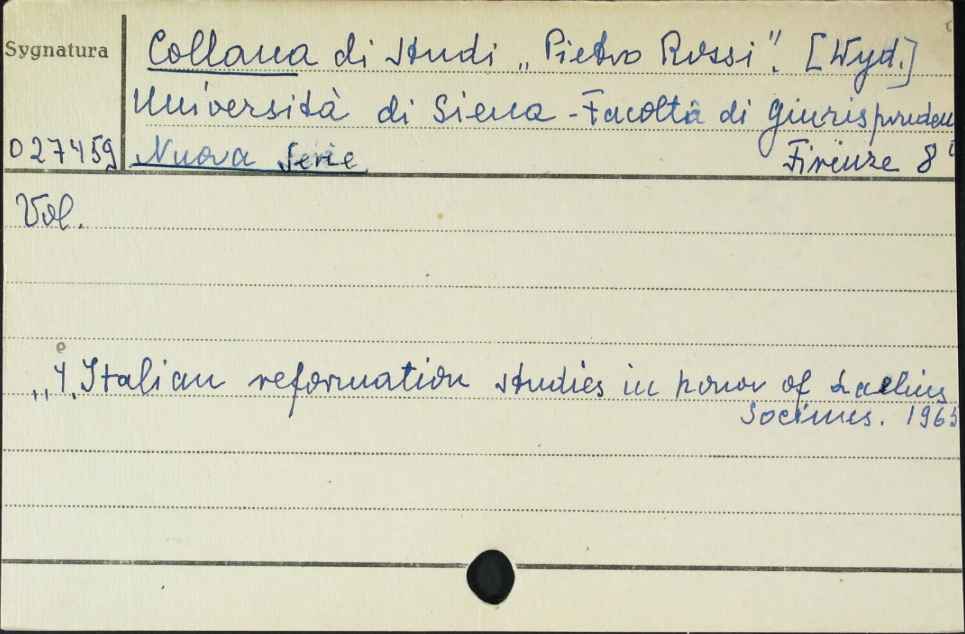 Sygnatura
Collana di Studi „Pietro Rossi”. [Wyd.]
Università di Siena - Facoltà di Giurispruden
027459 Nuova Serie. Firenze 8°
Vol.
„ 4. Italian reformation studies in honor of Laelius
Socinus. 1965